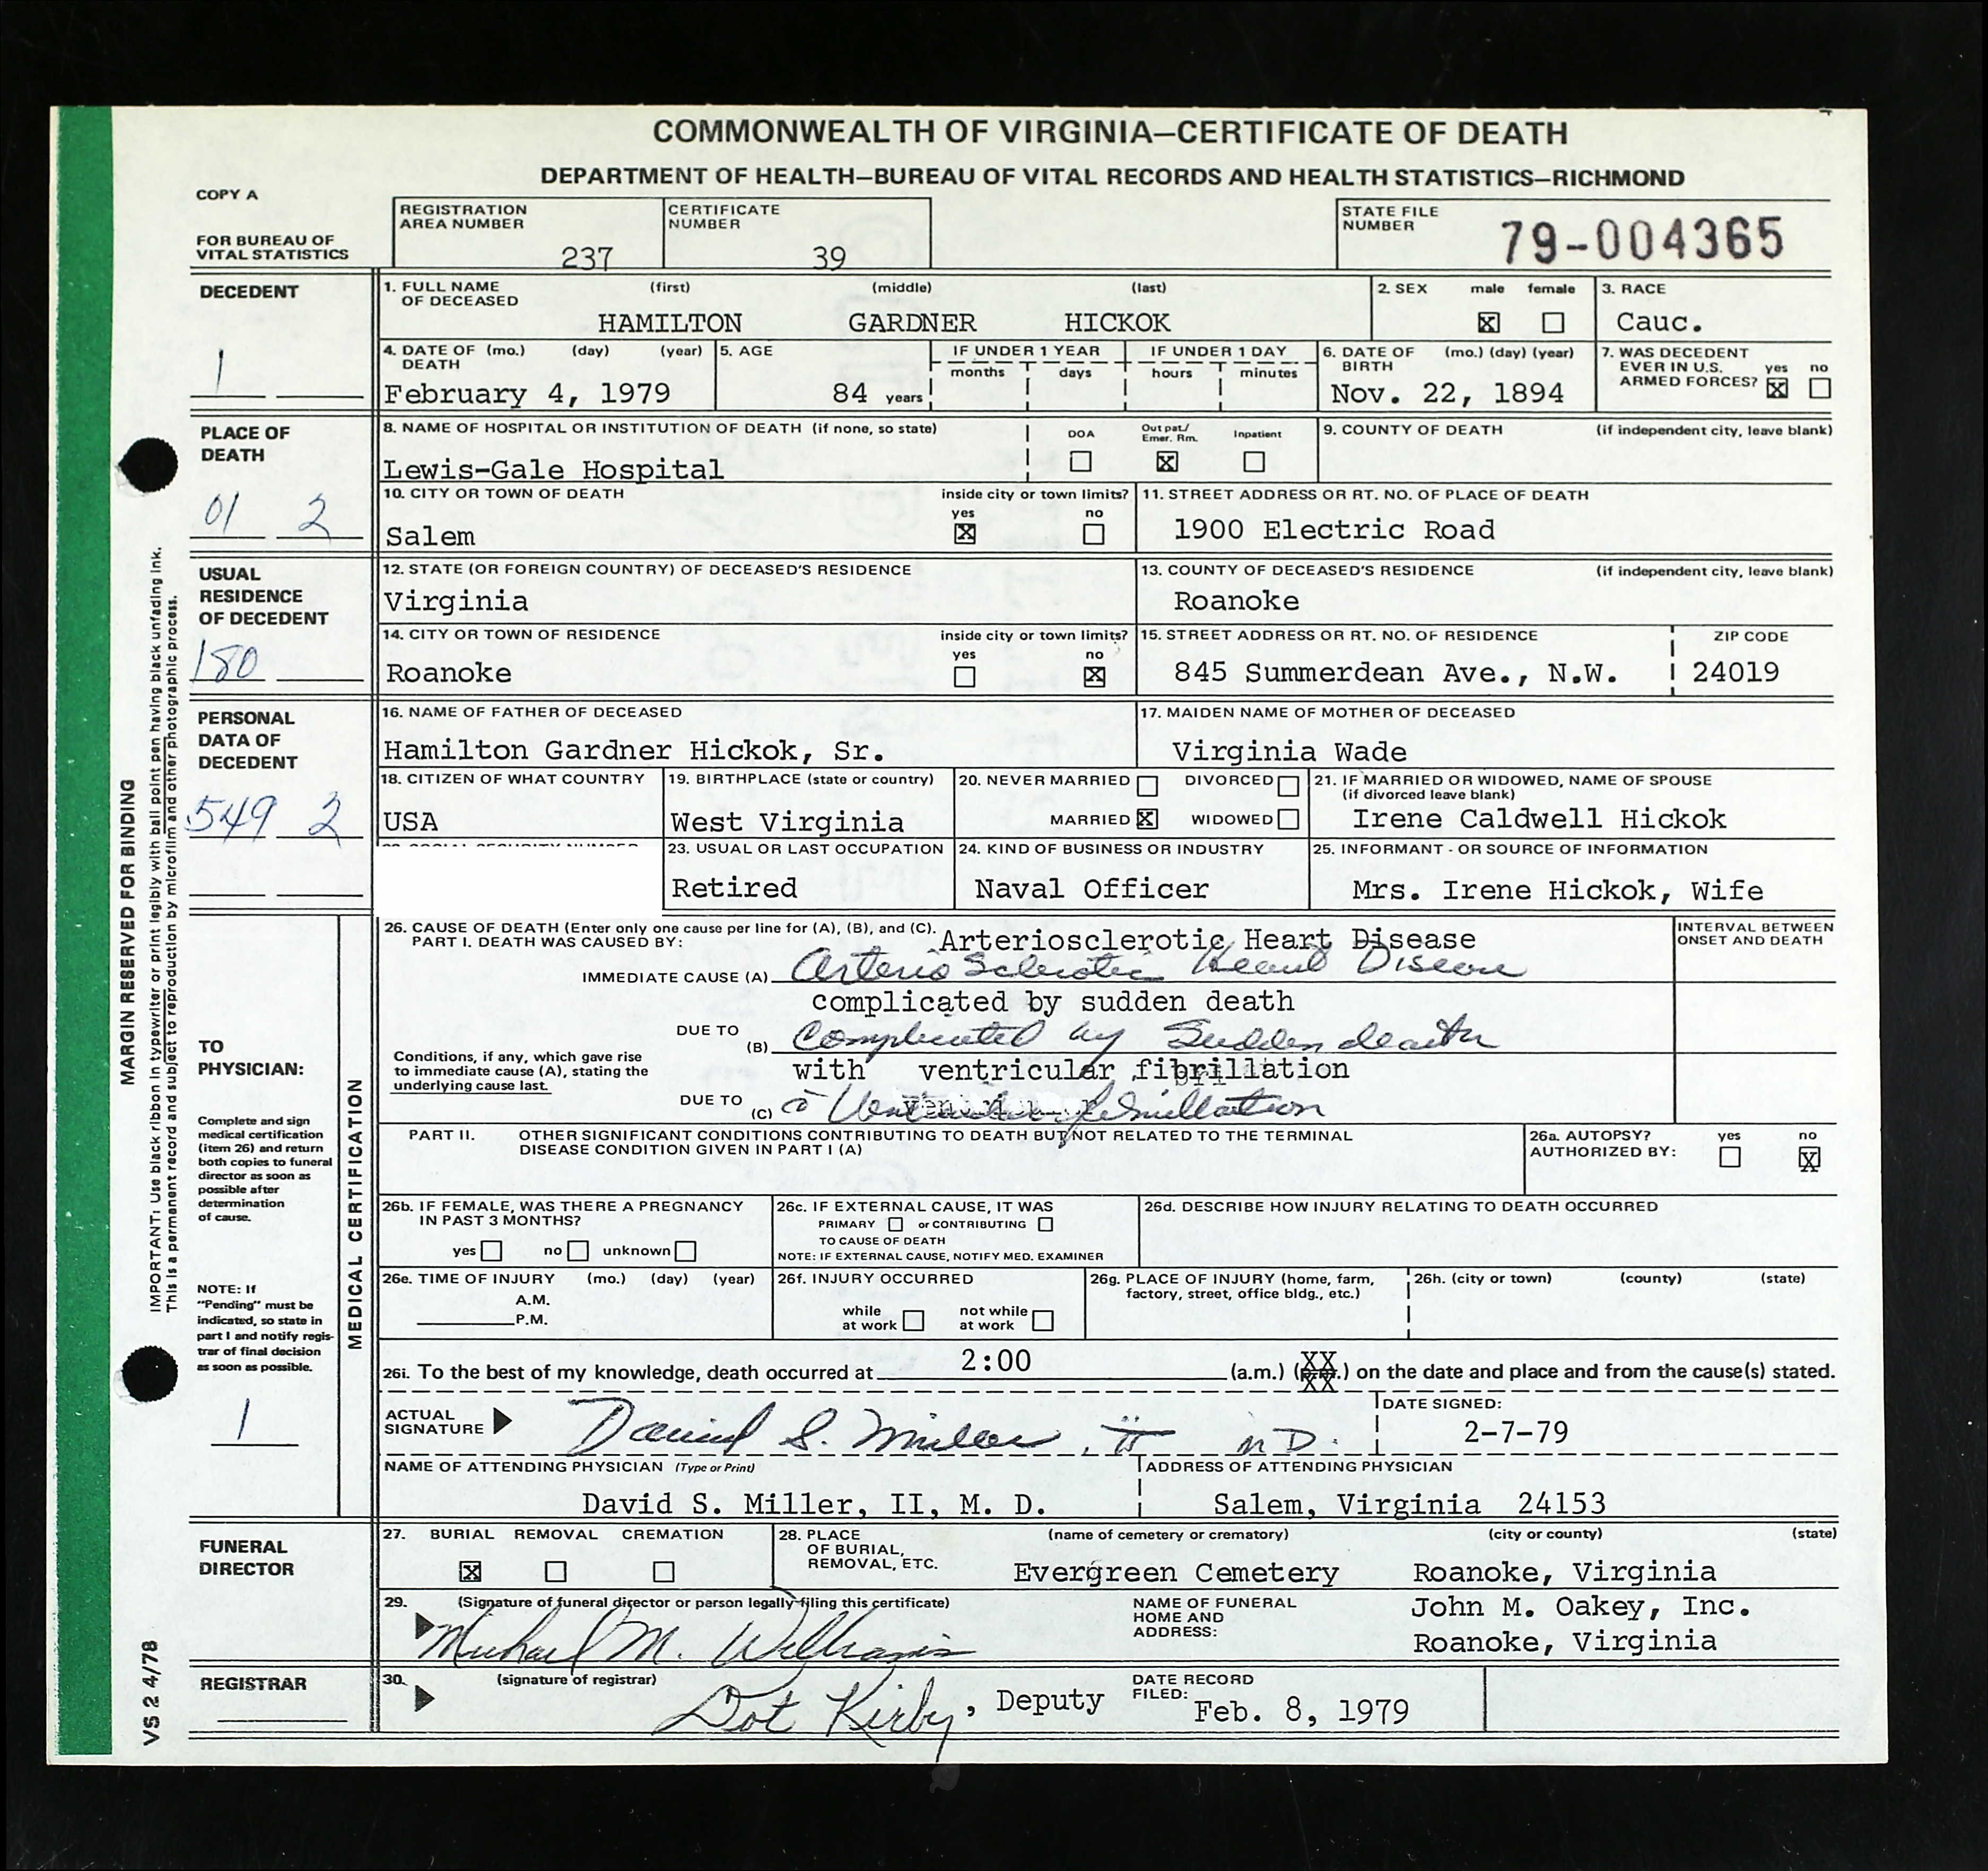 COMMONWEALTH OF VIRGINIA—CERTIFICATE OF DEATH
DEPARTMENT OF HEALTH—BUREAU OF VITAL RECORDS AND HEALTH STATISTICS—RICHMOND
COPY A
FOR BUREAU OF
VITAL STATISTICS
REGISTRATION
AREA NUMBER
237
CERTIFICATE
NUMBER
39
STATE FILE
NUMBER
79-004365
DECEDENT
1
1. FULL NAME
OF DECEASED
(first) (middle) (last)
HAMILTON GARDNER HICKOK
2. SEX male female
X
3. RACE
Cauc.
4. DATE OF (mo.) (day) (year)
DEATH
February 4, 1979
5. AGE
84 years
IF UNDER 1 YEAR
months days
IF UNDER 1 DAY
hours minutes
6. DATE OF (mo.) (day) (year)
BIRTH
Nov. 22, 1894
7. WAS DECEDENT
EVER IN U.S.
ARMED FORCES? yes no
X
PLACE OF
DEATH
01 2
8. NAME OF HOSPITAL OR INSTITUTION OF DEATH (if none, so state)
Lewis-Gale Hospital
DOA
Out pat./
Emer. Rm.
X
Inpatient
9. COUNTY OF DEATH (if independent city, leave blank)
10. CITY OR TOWN OF DEATH
Salem
inside city or town limits?
yes no
X
11. STREET ADDRESS OR RT. NO. OF PLACE OF DEATH
1900 Electric Road
USUAL
RESIDENCE
OF DECEDENT
180
12. STATE (OR FOREIGN COUNTRY) OF DECEASED'S RESIDENCE
Virginia
13. COUNTY OF DECEASED'S RESIDENCE (if independent city, leave blank)
Roanoke
14. CITY OR TOWN OF RESIDENCE
Roanoke
inside city or town limits?
yes no
X
15. STREET ADDRESS OR RT. NO. OF RESIDENCE
845 Summerdean Ave., N.W.
ZIP CODE
24019
PERSONAL
DATA OF
DECEDENT
549 2
16. NAME OF FATHER OF DECEASED
Hamilton Gardner Hickok, Sr.
17. MAIDEN NAME OF MOTHER OF DECEASED
Virginia Wade
18. CITIZEN OF WHAT COUNTRY
USA
19. BIRTHPLACE (state or country)
West Virginia
20. NEVER MARRIED DIVORCED
MARRIED X WIDOWED
21. IF MARRIED OR WIDOWED, NAME OF SPOUSE
(if divorced leave blank)
Irene Caldwell Hickok
23. USUAL OR LAST OCCUPATION
Retired
24. KIND OF BUSINESS OR INDUSTRY
Naval Officer
25. INFORMANT - OR SOURCE OF INFORMATION
Mrs. Irene Hickok, Wife
MARGIN RESERVED FOR BINDING
IMPORTANT: Use black ribbon in typewriter or print legibly with ball point pen having black unfading ink.
This is a permanent record and subject to reproduction by microfilm and other photographic process.
TO
PHYSICIAN:
Complete and sign
medical certification
(item 26) and return
both copies to funeral
director as soon as
possible after
determination
of cause.
NOTE: If
"Pending" must be
indicated, so state in
part I and notify regis-
trar of final decision
as soon as possible.
1
MEDICAL CERTIFICATION
26. CAUSE OF DEATH (Enter only one cause per line for (A), (B), and (C).
PART I. DEATH WAS CAUSED BY:
INTERVAL BETWEEN
ONSET AND DEATH
Arteriosclerotic Heart Disease
IMMEDIATE CAUSE (A) Arterio Sclerotic Heart Disease
complicated by sudden death
DUE TO
(B) Complicated by Sudden death
Conditions, if any, which gave rise
to immediate cause (A), stating the
underlying cause last.
with ventricular fibrillation
DUE TO
(C) c̄ Ventricular fibrillation
PART II. OTHER SIGNIFICANT CONDITIONS CONTRIBUTING TO DEATH BUT NOT RELATED TO THE TERMINAL
DISEASE CONDITION GIVEN IN PART I (A)
26a. AUTOPSY? yes no
AUTHORIZED BY: X
26b. IF FEMALE, WAS THERE A PREGNANCY
IN PAST 3 MONTHS?
yes no unknown
26c. IF EXTERNAL CAUSE, IT WAS
PRIMARY or CONTRIBUTING
TO CAUSE OF DEATH
NOTE: IF EXTERNAL CAUSE, NOTIFY MED. EXAMINER
26d. DESCRIBE HOW INJURY RELATING TO DEATH OCCURRED
26e. TIME OF INJURY (mo.) (day) (year)
A.M.
P.M.
26f. INJURY OCCURRED
while
at work
not while
at work
26g. PLACE OF INJURY (home, farm,
factory, street, office bldg., etc.)
26h. (city or town) (county) (state)
26i. To the best of my knowledge, death occurred at 2:00 (a.m.) (p.m.) on the date and place and from the cause(s) stated.
ACTUAL
SIGNATURE
David S. Miller, II M D.
DATE SIGNED:
2-7-79
NAME OF ATTENDING PHYSICIAN (Type or Print)
David S. Miller, II, M. D.
ADDRESS OF ATTENDING PHYSICIAN
Salem, Virginia 24153
FUNERAL
DIRECTOR
27. BURIAL REMOVAL CREMATION
X
28. PLACE
OF BURIAL,
REMOVAL, ETC.
(name of cemetery or crematory) (city or county) (state)
Evergreen Cemetery Roanoke, Virginia
29. (Signature of funeral director or person legally filing this certificate)
Michael M. Williams
NAME OF FUNERAL
HOME AND
ADDRESS:
John M. Oakey, Inc.
Roanoke, Virginia
REGISTRAR
30. (signature of registrar)
Dot Kirby, Deputy
DATE RECORD
FILED:
Feb. 8, 1979
VS 2 4/78